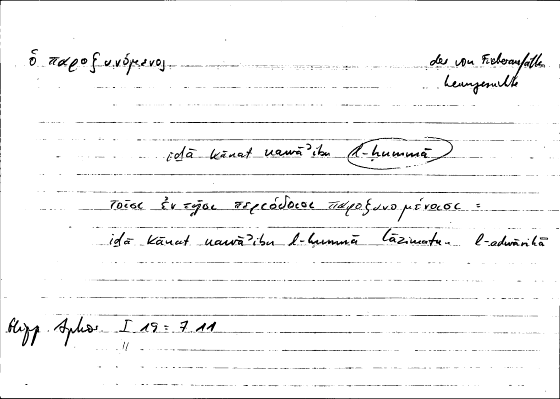 ὁ παροξυνόμενος
der von Fieberanfällen
heimgesuchte
iḏā kānat nawāʾibu l-ḥummā
τοῖσι ἐν τῇσι περιόδοισι παροξυνομένοισι =
iḏā kānat nawāʾibu l-ḥummā lāzimatun l-adwārihā
Hipp. Aphor. I 19 = 7 11
"